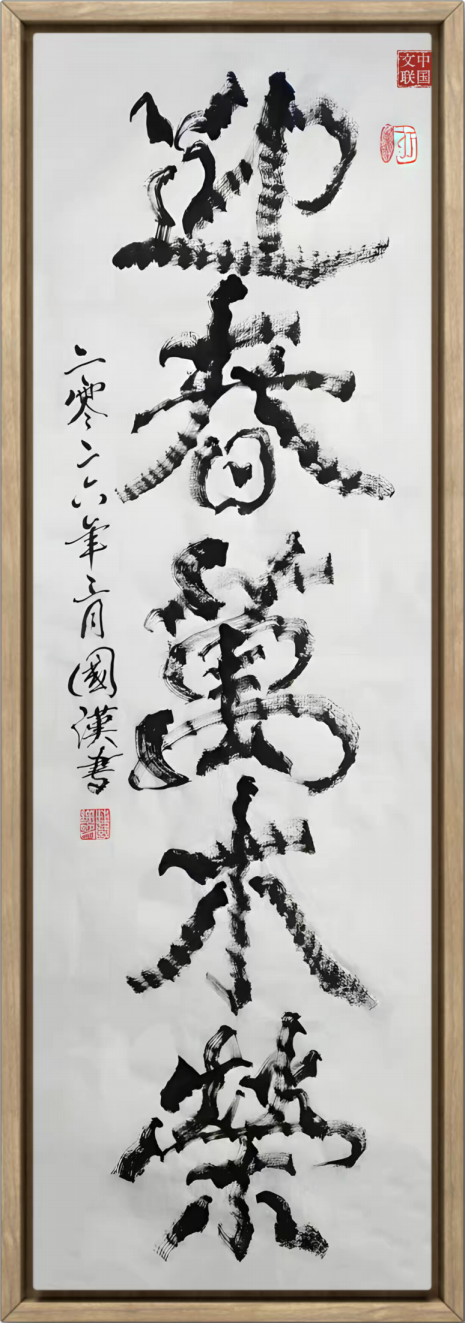 中国
文联
迎春萬木榮
二零二六年三月國漢書